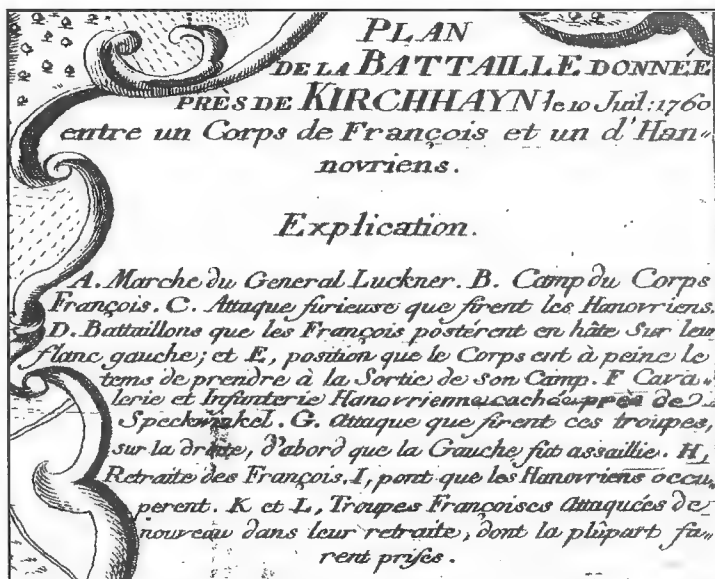 PLAN
DE LA BATTAILLE DONNÉE
PRÈS DE KIRCHHAYN le 10 Juil: 1760
entre un Corps de François et un d'Han=
novriens.
Explication.
A. Marche du General Luckner. B. Camp du Corps
François. C. Attaque furieuse que firent les Hanovriens.
D. Battaillons que les François postérent en hâte Sur leur
flanc gauche; et E, position que le Corps eut à peine le
tems de prendre à la Sortie de son Camp. F Cava=
lerie et Infanterie Hanovrienne cachée près de
Speckwinkel. G. Attaque que firent ces troupes,
sur la droite, d'abord que la Gauche fut assaillie. H,
Retraite des François. I, pont que les Hanovriens occu=
perent. K et L, Troupes Françoises Attaquées de
nouveau dans leur retraite, dont la plûpart fu=
rent prises.